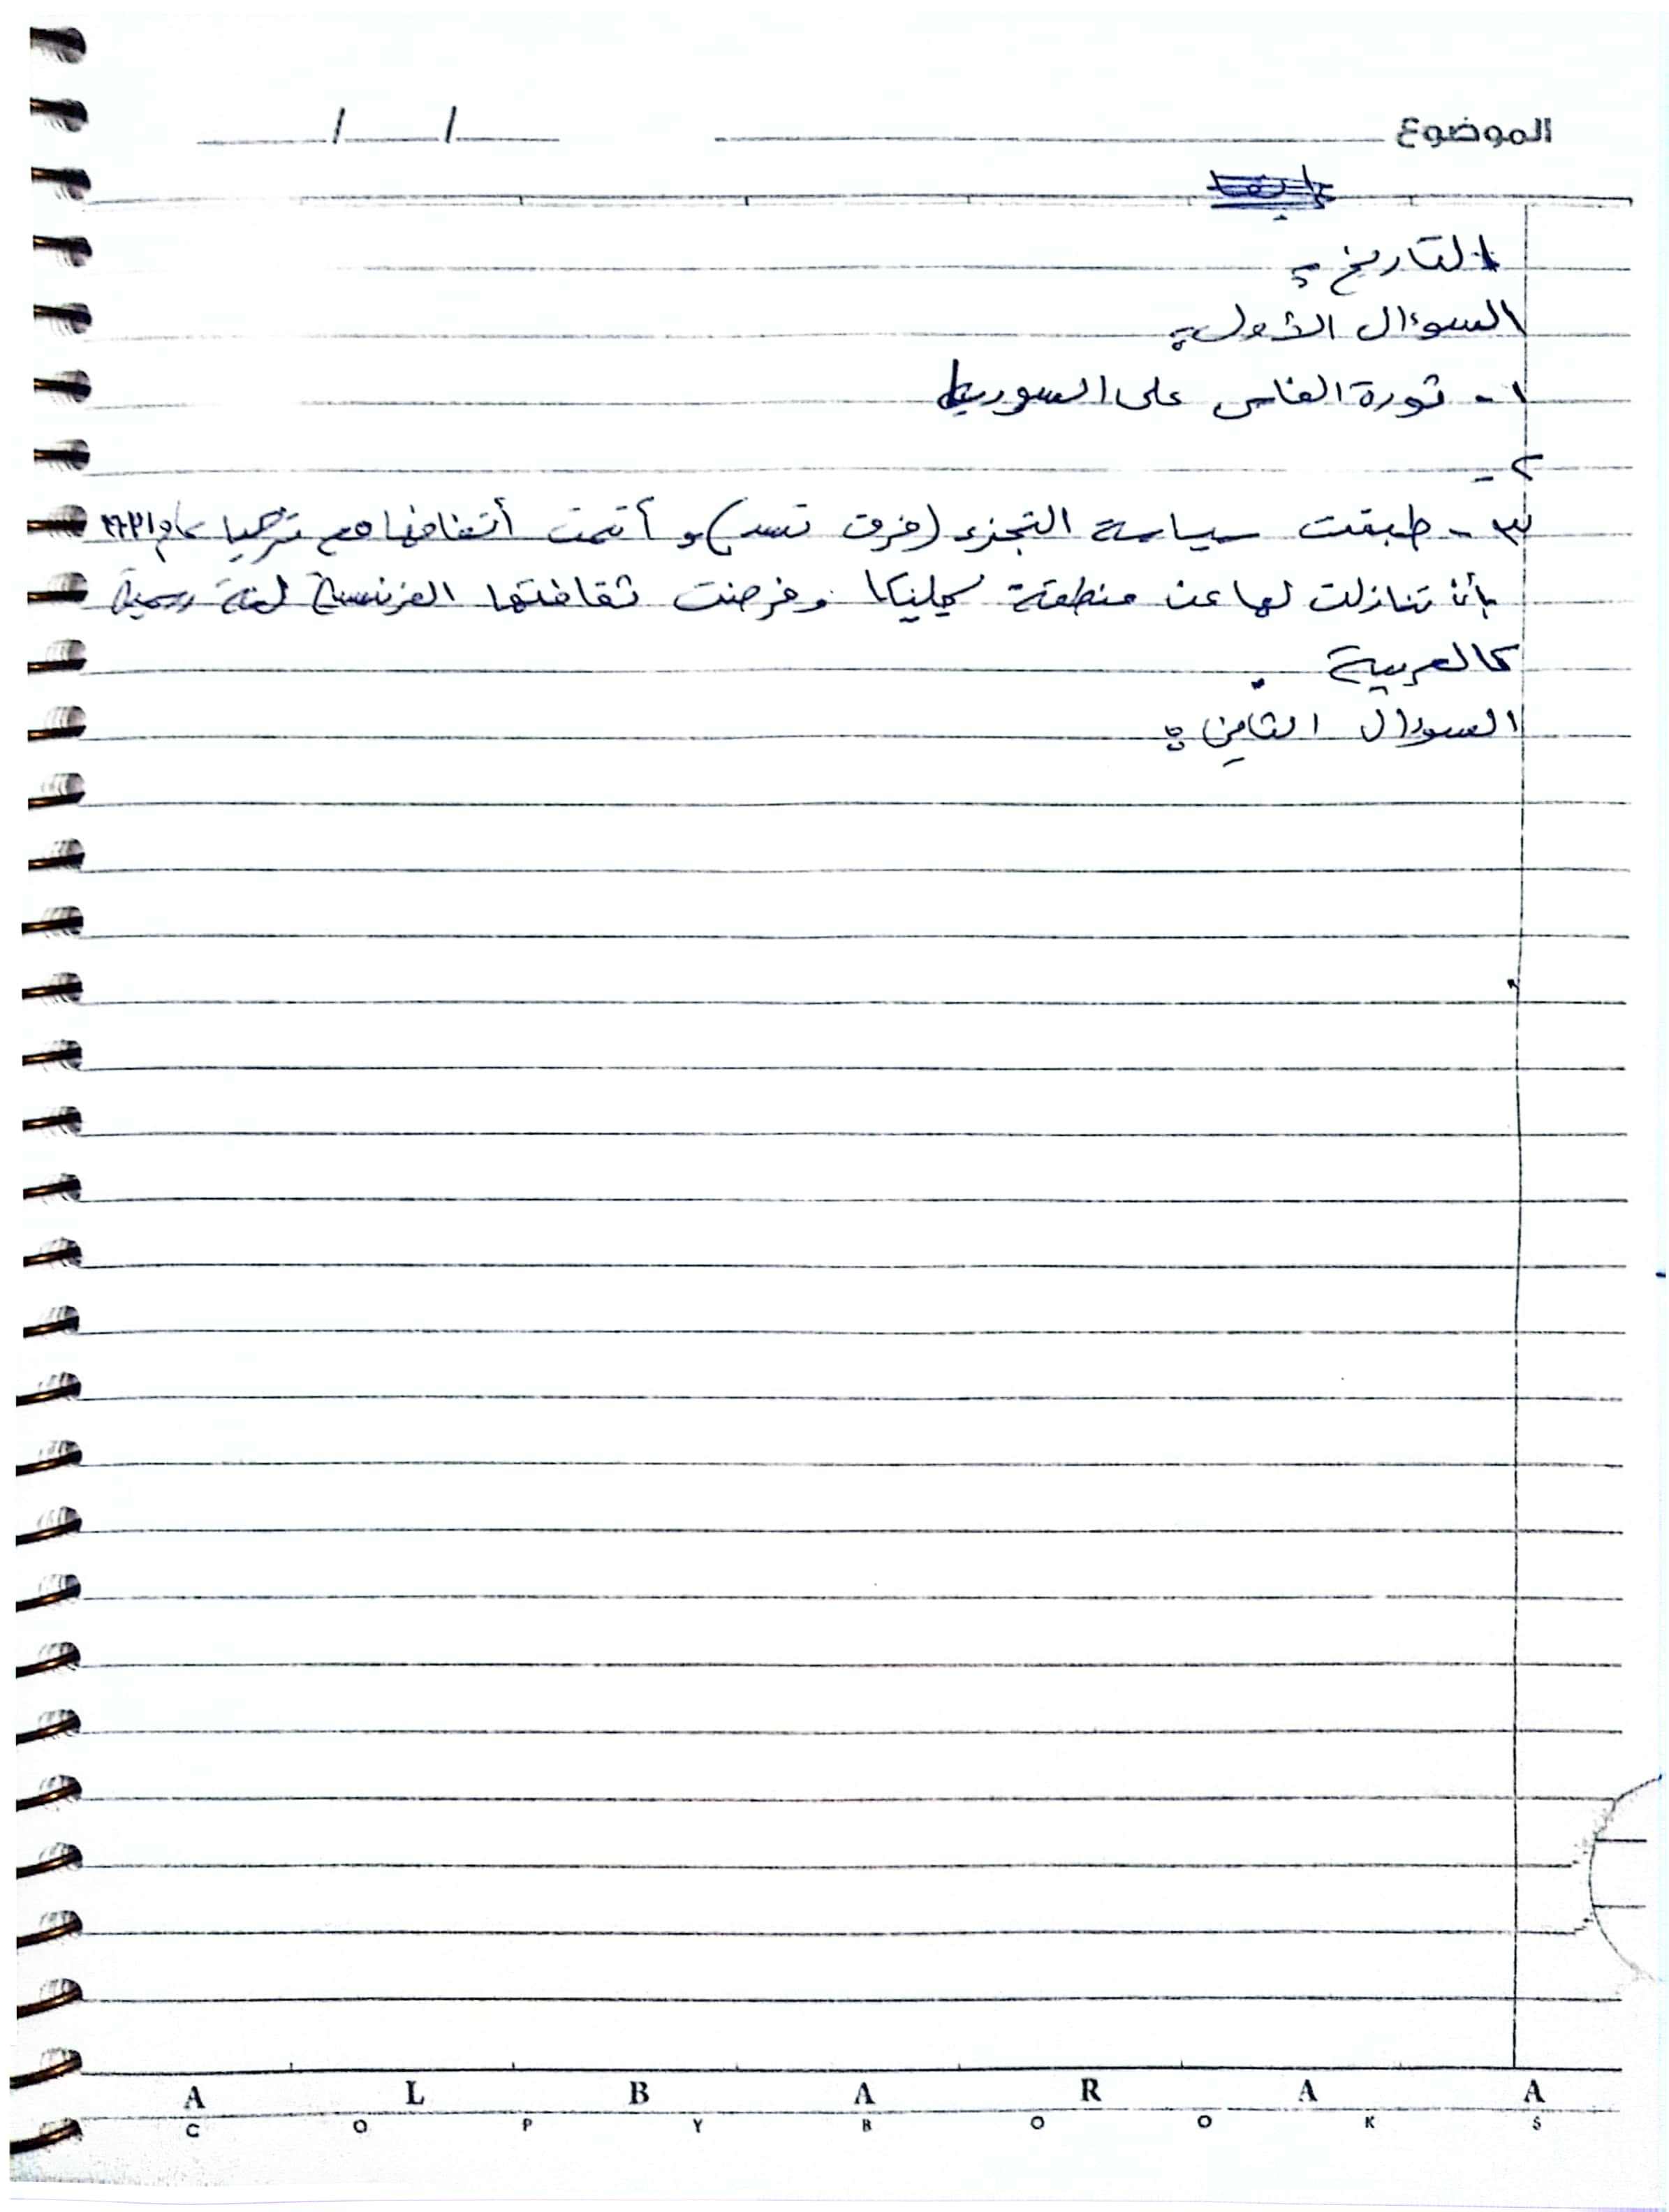 الموضوع / /
التاريخ :
السوءال الأول :
١- ثورة الفاس على السوريا
٢-
٣- طبقت سياسة التجزء (فرق تسد) و أتمت أتفاقها مع تركيا عام ١٩٢١م
بأن تنازلت لها عن منطقة كيليكا وفرضت ثقافتها الفرنسية لغة رسمية
كالعربية .
السوءال الثامن :
A L B A R A A
C O P Y B O O K S